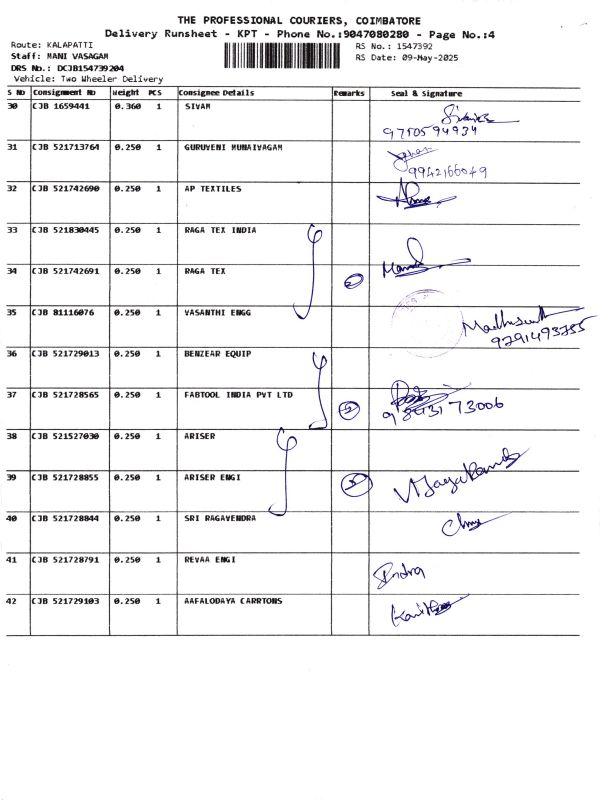 THE PROFESSIONAL COURIERS, COIMBATORE
Delivery Runsheet - KPT - Phone No.:9047080280 - Page No.:4
Route: KALAPATTI RS No.: 1547392
Staff: MANI VASAGAM RS Date: 09-May-2025
DRS No.: DCJB154739204
Vehicle: Two Wheeler Delivery
S No Consignment No Weight PCS Consignee Details Remarks Seal & Signature
30 CJB 1659441 0.360 1 SIVAM
9750594934
31 CJB 521713764 0.250 1 GURUVENI MUNAIVAGAM
9942166049
32 CJB 521742690 0.250 1 AP TEXTILES
33 CJB 521830445 0.250 1 RAGA TEX INDIA
34 CJB 521742691 0.250 1 RAGA TEX
35 CJB 81116076 0.250 1 VASANTHI ENGG
9291493755
36 CJB 521729013 0.250 1 BENZEAR EQUIP
37 CJB 521728565 0.250 1 FABTOOL INDIA PVT LTD
9843173006
38 CJB 521527030 0.250 1 ARISER
39 CJB 521728855 0.250 1 ARISER ENGI Vijayakand
40 CJB 521728844 0.250 1 SRI RAGAVENDRA
41 CJB 521728791 0.250 1 REVAA ENGI Indra
42 CJB 521729103 0.250 1 AAFALODAYA CARRTONS